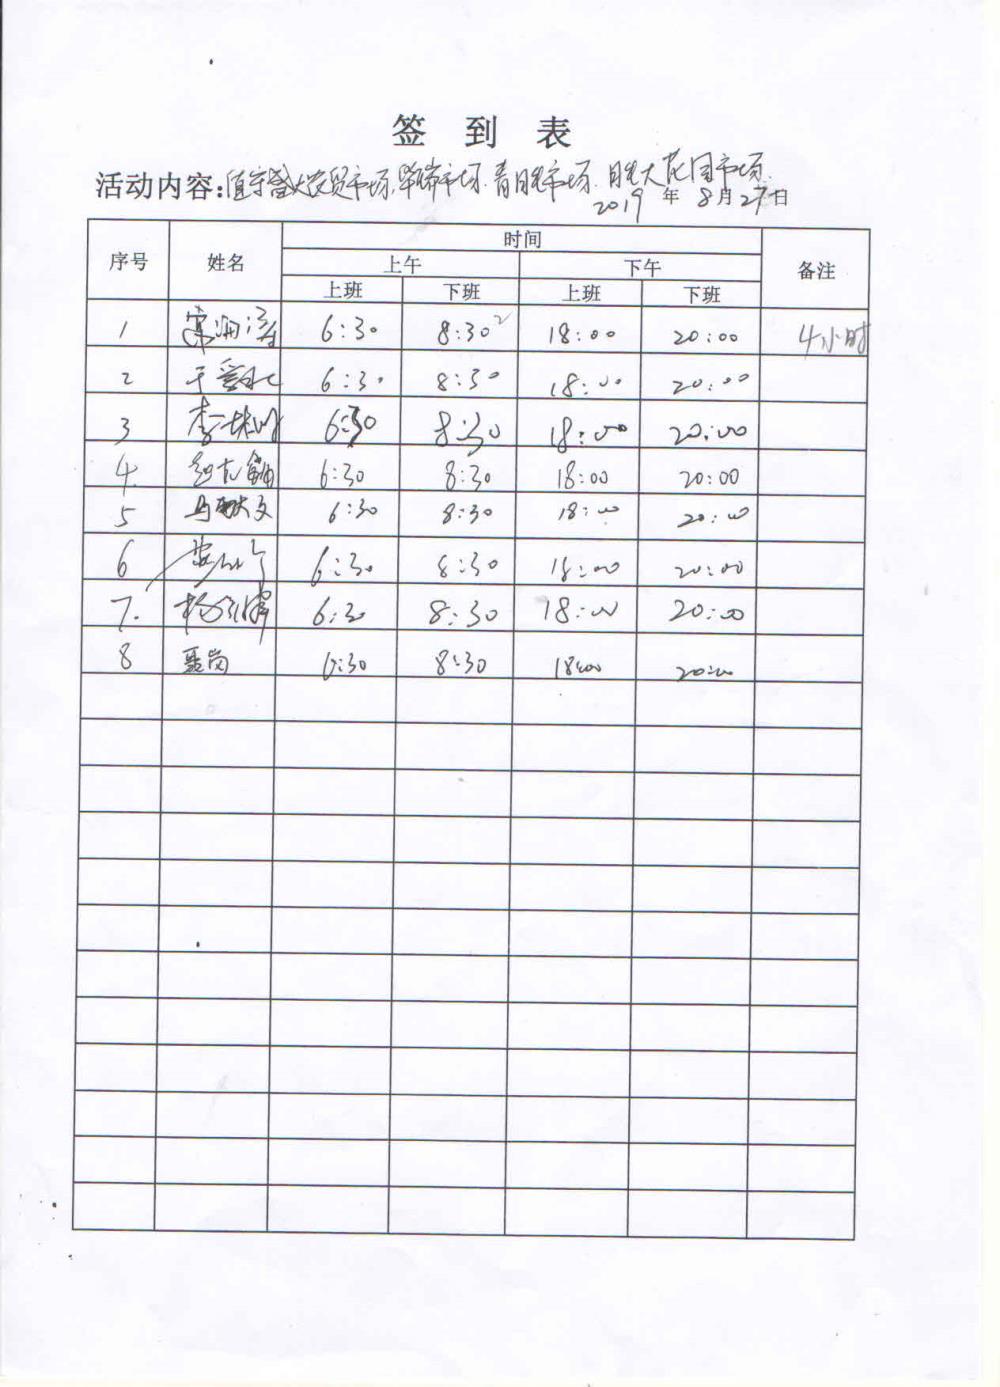 签 到 表
活动内容:值守 农贸市场. 市场. 青 市场. 大花园市场.
2019 年 8 月 27 日
序号 姓名 时间 备注
上午 下午
上班 下班 上班 下班
1 6:30 8:30 18:00 20:00 4小时
2 6:30 8:30 18:00 20:00
3 李 6:30 8:30 18:00 20:00
4. 6:30 8:30 18:00 20:00
5 马献文 6:30 8:30 18:00 20:00
6 6:30 8:30 18:00 20:00
7. 杨 6:30 8:30 18:00 20:00
8 聂岗 6:30 8:30 18:00 20:00